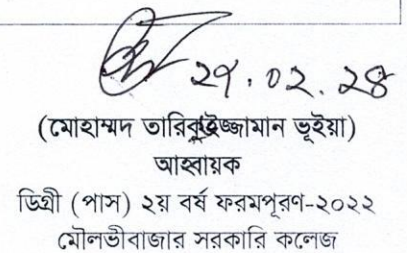 ২৭.০২.২৪
(মোহাম্মদ তারিকুইজ্জামান ভূইয়া)
আহ্বায়ক
ডিগ্রী (পাস) ২য় বর্ষ ফরমপূরণ-২০২২
মৌলভীবাজার সরকারি কলেজ